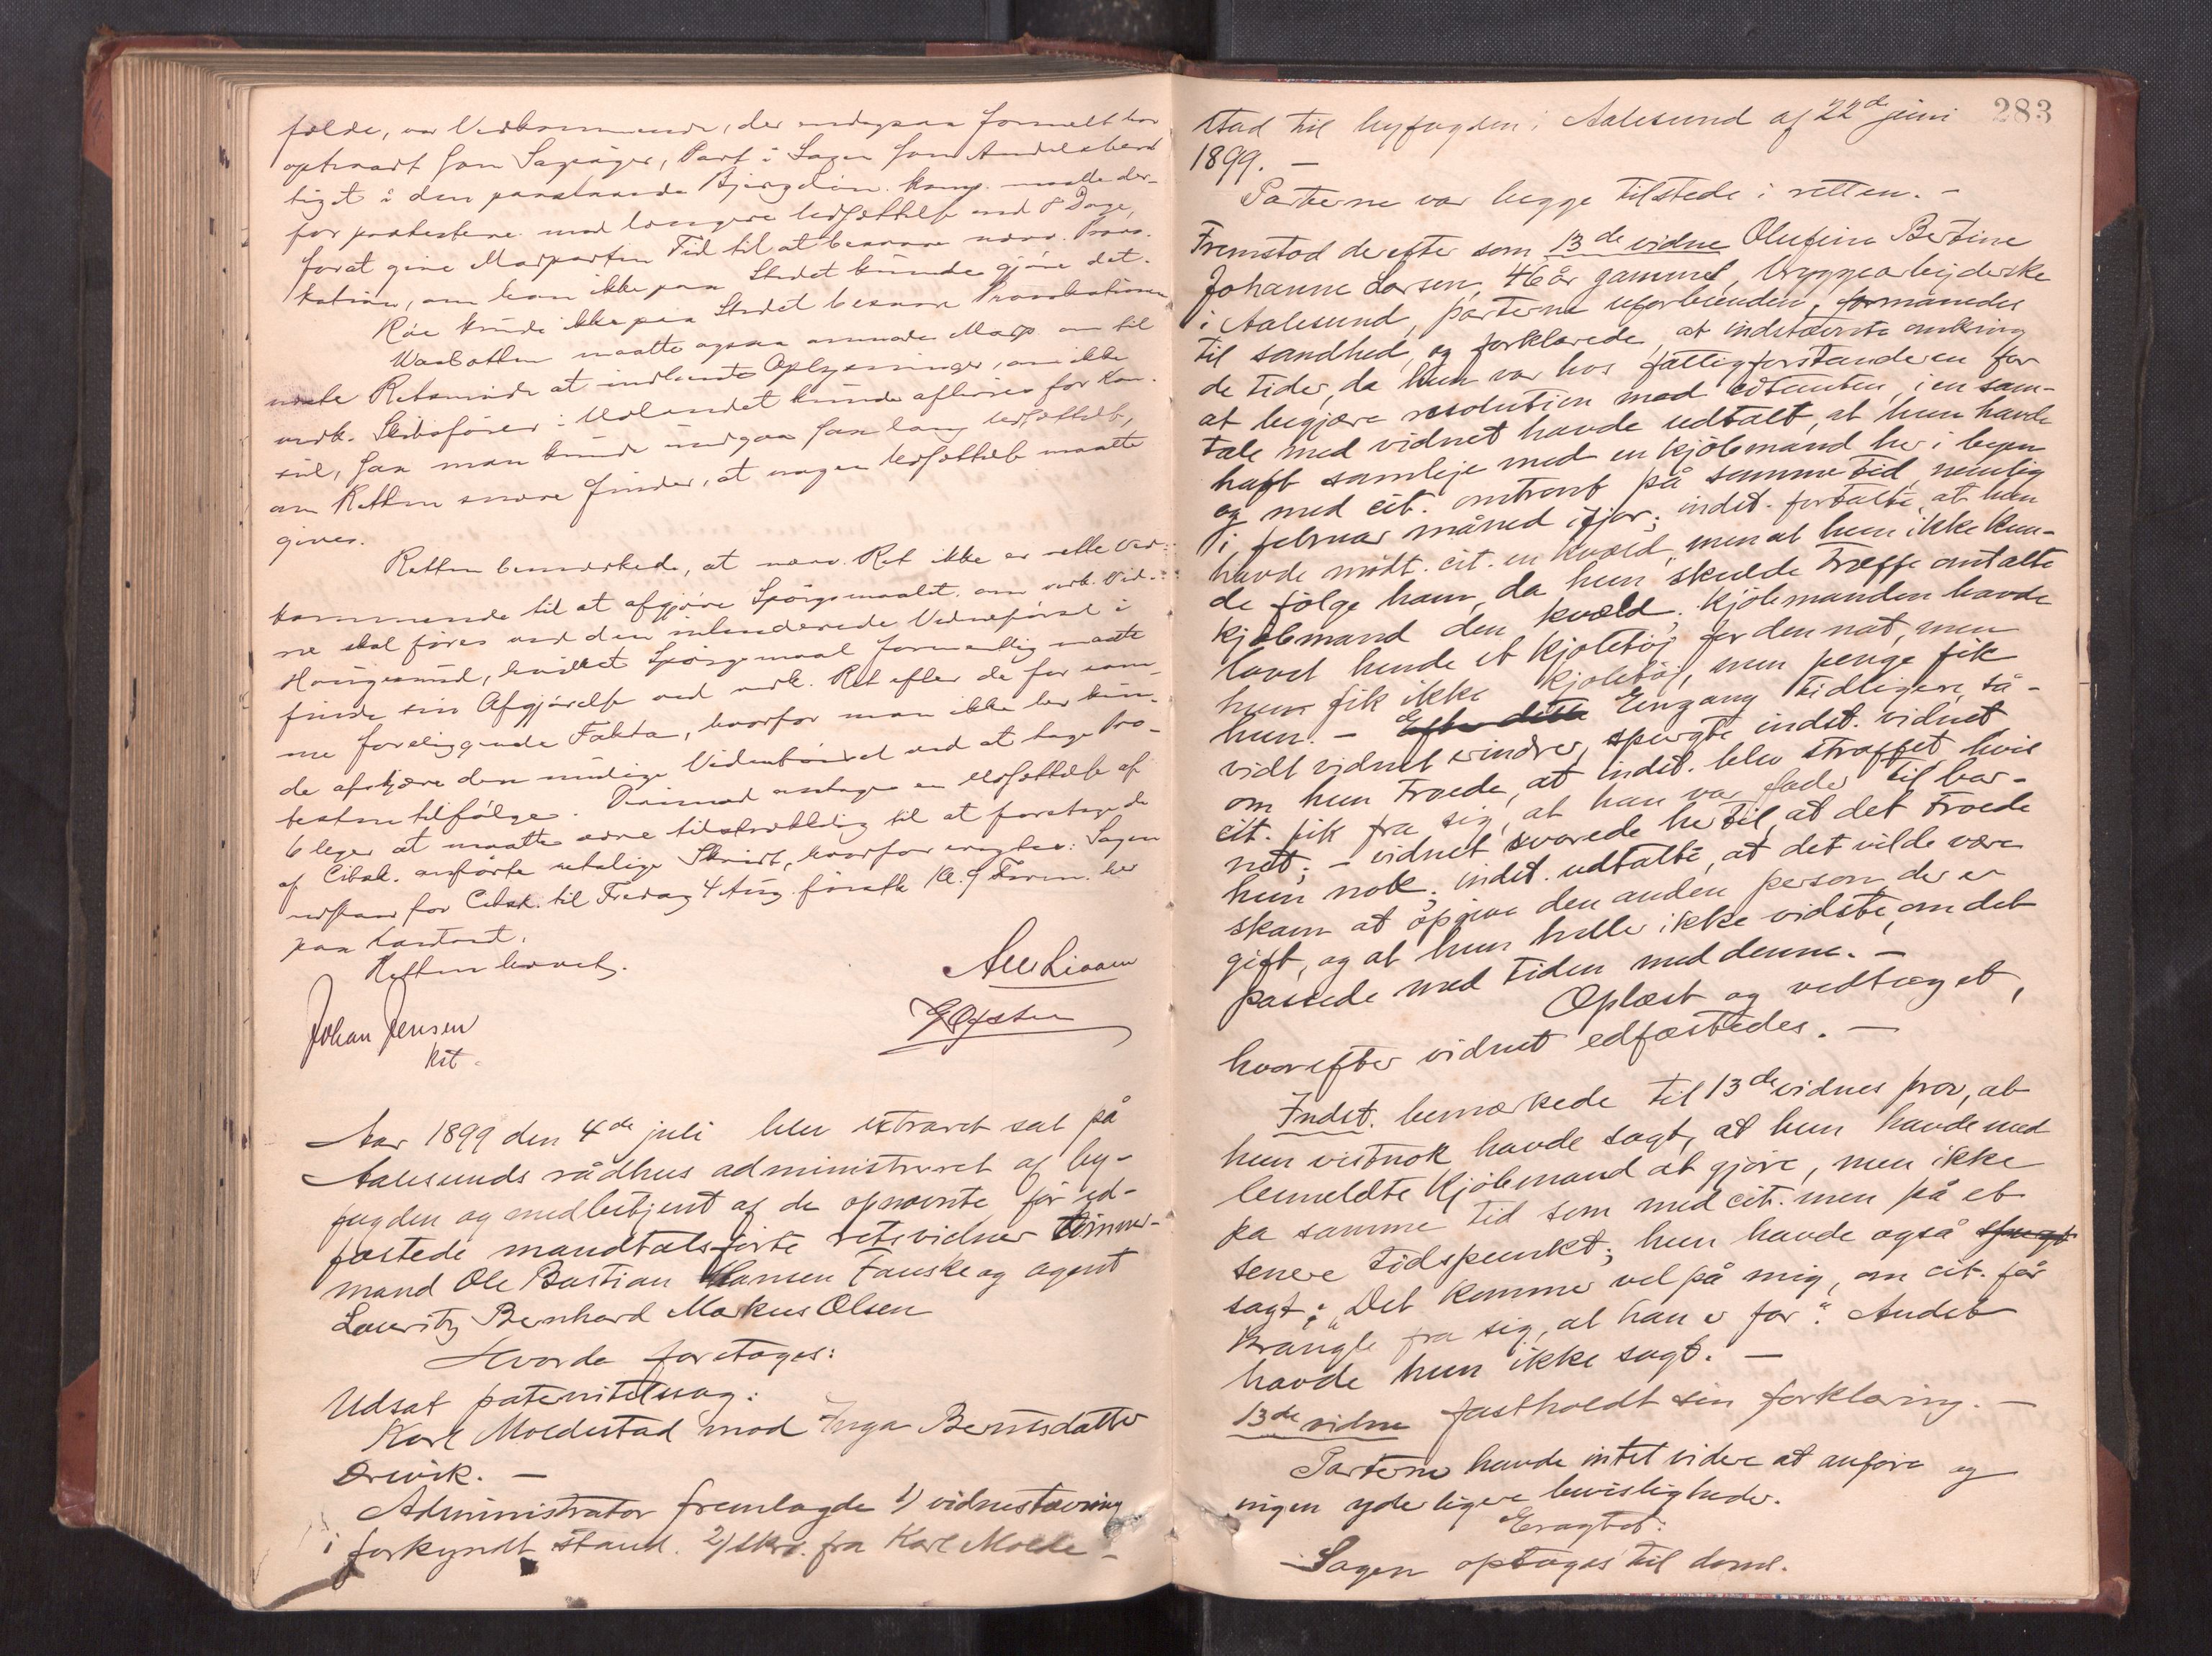 følde, var Vedkommende, der endogsaa formelt har
optraadt som Sagsøger, Part i Sagen som Andelsberet
tiget i den paastaaende Bjergeløn. Komp. maatte der-
for protestere mod længere Udsættelse end 8 Dage,
forat give Modparten Tid til at besvare nærv. Provo-
kation, om han ikke paa Stedet kunde gjøre det.
Röe kunde ikke paa Stedet besvare Provokationen
maatte ogsaa anmode om til
næste Retsmøde at indhente Oplysninger, om ikke
vedk. Skibsfører i Udlandet kunde afhøres for Kon-
sul, saa man kunde undgaa saa lang Udsættelse,
om Retten finder, at nogen Udsættelse maatte
gives.
Retten bemærkede, at nærv. Ret ikke er rette Ved-
kommende til at afgjøre Spørgsmaalet, om vedk. Vid-
ne skal føres ved den intenderede Vidneførsel i
Haugesund, hvilket Spørgsmaal formentlig maatte
finde sin Afgjørelse ved vedk. Ret efter de for sam-
me foreliggende Fakta, hvorfor man ikke her kun-
de afskjære den mulige Vidneførsel ved at tage Pro-
testen tilfølge. Derimod antages en Udsættelse af
6 Uger at maatte være tilstrækkelig til at foretage de
af Citsk. anførte retslige Skridt, hvorfor eragtes: Sagen
udstaar for Citsk. til Fredag 4 Aug. førstk. Kl. 9 Form. her
paa Kontoret.
Retten hævet.
Johan Jensen
kst.
Aar 1899 den 4de juli blev extraret sat på
Aalesunds rådhus administreret af by-
fogden og medbetjent af de opnævnte før ed-
fæstede mandtalsførte retsvidner tømmer-
mand Ole Bastian Hansen Fauske og agent
Lauritz Bernhard Markus Olsen
Hvorda foretoges:
Udsat paternitetssag:
Karl Moldestad mod Inga Berntsdatter
Ørevik. —
Administrator fremlagde 1/ vidnestævning
i forkyndt stand. 2/ skr. fra Karl Molde-
283
stad til byfogden i Aalesund af 22de juni
1899. —
Parterne var begge tilstede i retten. —
Fremstod derefter som 13de vidne Olufine Bertine
Johanne Larsen, 46 år gammel, bryggearbejderske
i Aalesund, parterne uforbeunden, formanedes
til sandhed, og forklarede, at indstævnte omkring
de tider, da hun var hos fattigforstanderen for
at begjære resolution mod citanten, i en sam-
tale med vidnet havde udtalt, at hun havde
haft samleje med en kjøbmand her i byen
og med cit. omtrent på samme tid, nemlig
i februar måned ifjor; indst. fortalte, at hun
havde mødt cit. en kvæld, men at hun ikke kun-
de følge ham, da hun skulde træffe omtalte
kjøbmand den kvæld. Kjøbmanden havde
lovet hende et kjoletøj for den nat, men
hun fik ikke kjoletøj, men penge fik
hun. — Efter dette Engang tidligere, så-
vidt vidnet erindrer, spurgte indst. vidnet
om hun troede, at indst. blev straffet hvis
cit. fik fra sig, at han var fader til bar-
net; — vidnet svarede hertil, at det troede
hun nok; indst. udtalte, at det vilde være
skam at opgive den anden person, der er
gift, og at hun heller ikke vidste, om det
passede med tiden med denne. —
Oplæst og vedtaget,
hvorefter vidnet edfæstedes. —
Indst. bemærkede til 13de vidnes prov, at
hun vistnok havde sagt, at hun havde med
bemeldte kjøbmand at gjøre, men ikke
pa samme tid som med cit. men på et
senere tidspunkt; hun havde også spurgt
sagt: "Det kommer vel på mig, om cit. får
krangle fra sig, at han er far". Andet
havde hun ikke sagt. —
13de vidne fastholdt sin forklaring. —
Parterne havde intet videre at anføre og
ingen yderligere bevisligheder.
Eragtet:
Sagen optages til doms.